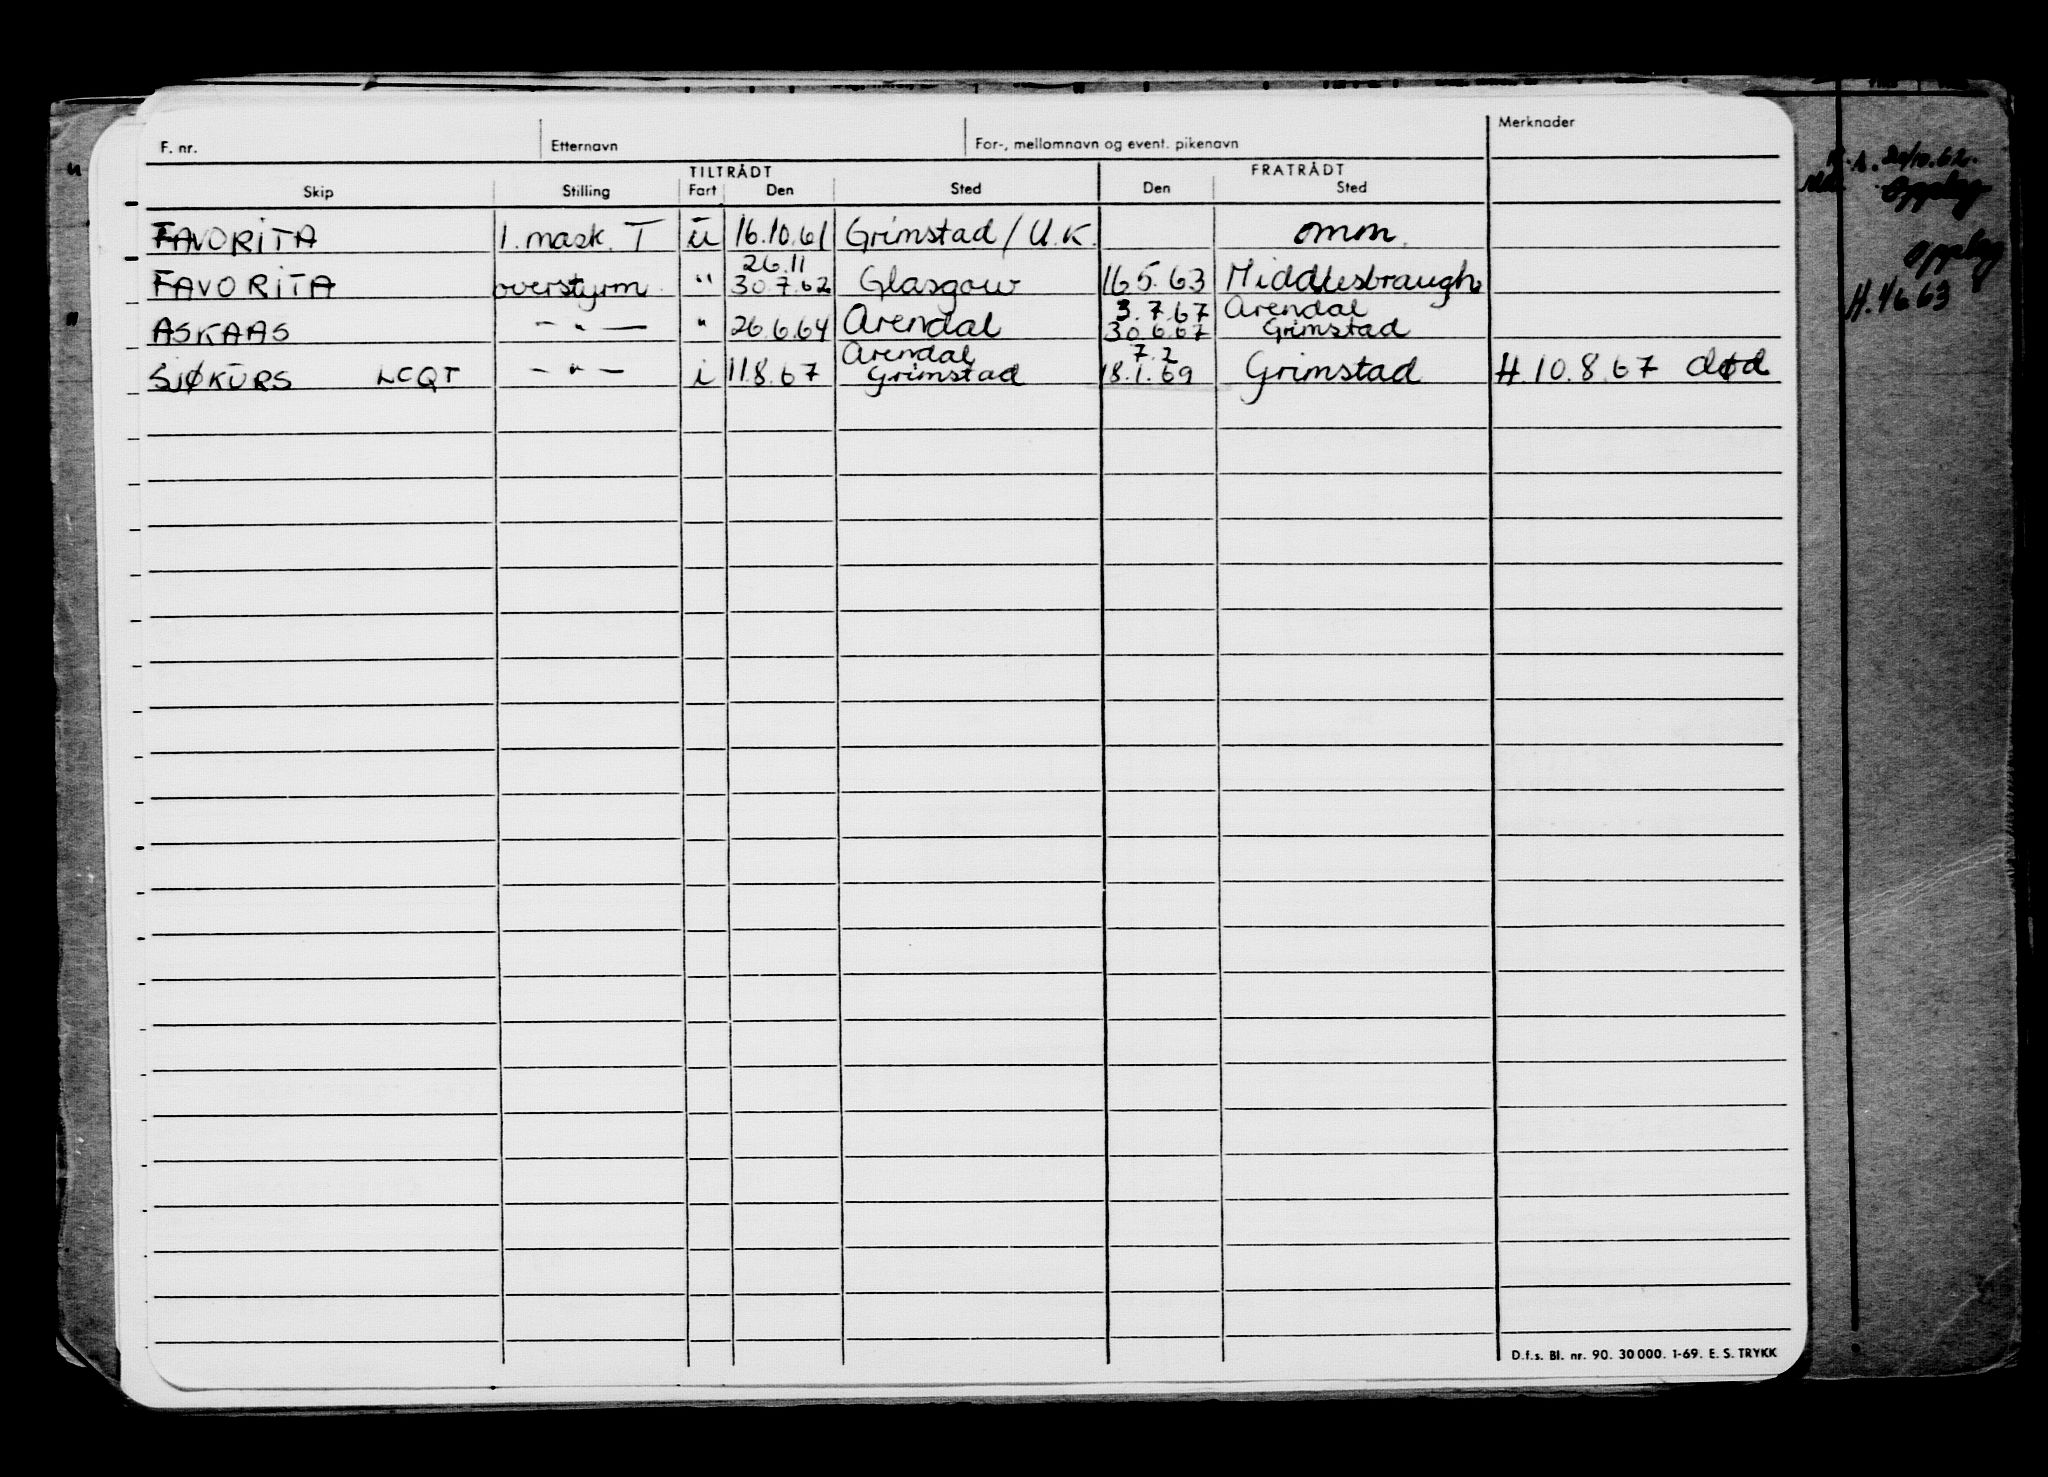 F. nr. Etternavn For-, mellomnavn og event. pikenavn Merknader
TILTRÅDT FRATRÅDT
Skip Stilling Fart Den Sted Den Sted
FAVORITA 1. mask. T u 16.10.61 Grimstad / U.K. omm.
26.11
FAVORITA overstyrm " 30.7.62 Glasgow 16.5.63 Middlesbraugh
3.7.67 Arendal
ASKAAS — " — " 26.6.64 Arendal 30.6.67 Grimstad
Arendal 7.2
SJØKURS LCQT — " — i 11.8.67 Grimstad 18.1.69 Grimstad H. 10.8.67 død
Opplag
Opplag
H. 4.6.63
D.f.s. Bl. nr. 90. 30 000. 1-69. E. S. TRYKK